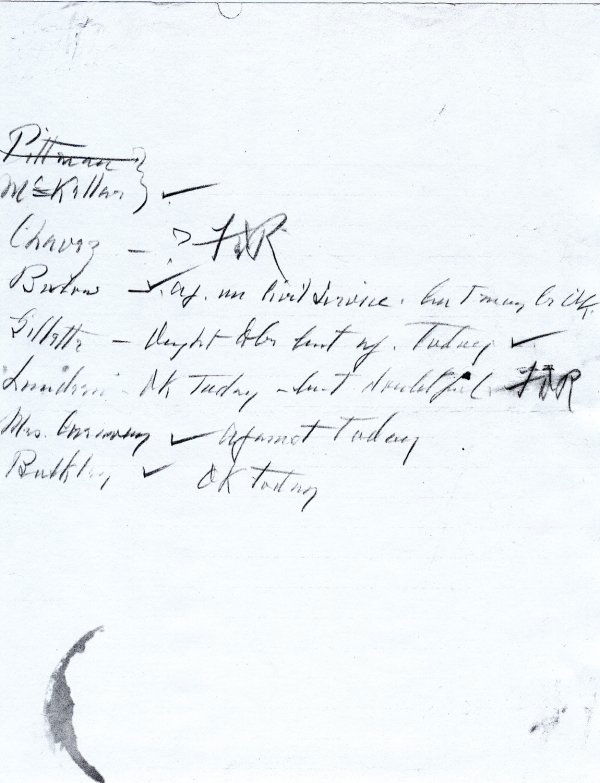 Pittman }
McKellar } ✓
Chavez – ? FDR
Bulow – ✓ ag. on Civil Service. but may be OK.
Gillette – ought to be but ag. Today ✓
Lundeen – OK Today – but doubtful FDR
Mrs. Caraway ✓ against Today
Bulkley ✓ OK today